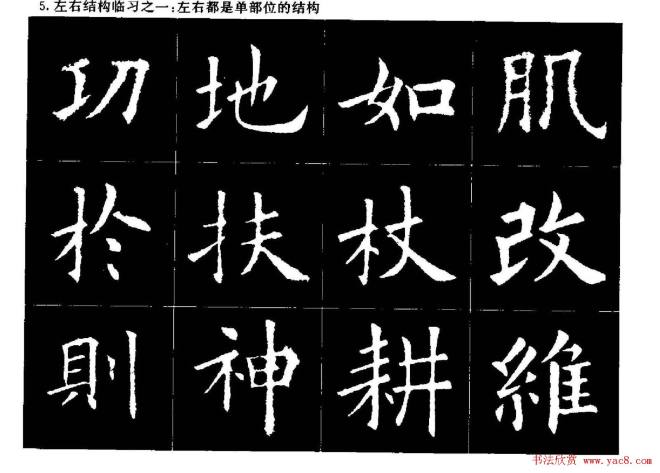 5.左右结构临习之一:左右都是单部位的结构
功地如肌
於扶杖改
則神耕維
书法欣赏 www.yac8.com